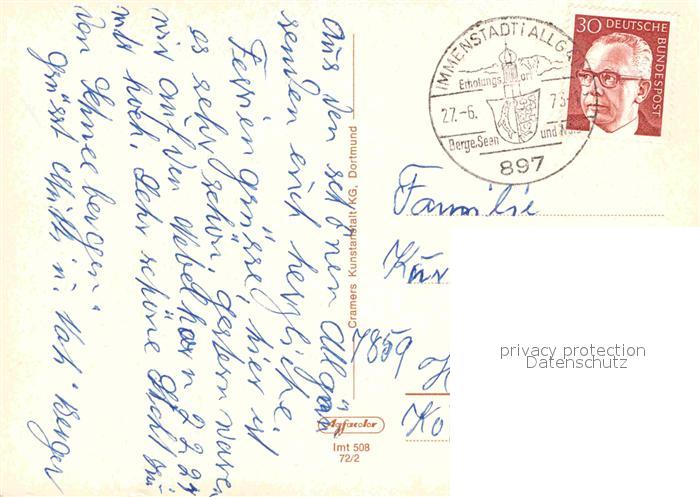 Aus den schönen Allgäu
senden euch herzliche
Feriengrüsse, hier ist
es sehr schön, gestern waren
wir auf den Nebelhorn 2224
mtr hoch. Sehr schöne Sicht zu
den Schneebergen.
grüsst
Berger
Cramers Kunstanstalt KG, Dortmund
Agfacolor
Imt 508
72/2
IMMENSTADT i ALLG
Erholungsort
27.-6.
73
Berge, Seen und
897
30 DEUTSCHE
BUNDESPOST
Familie
7859
privacy protection
Datenschutz